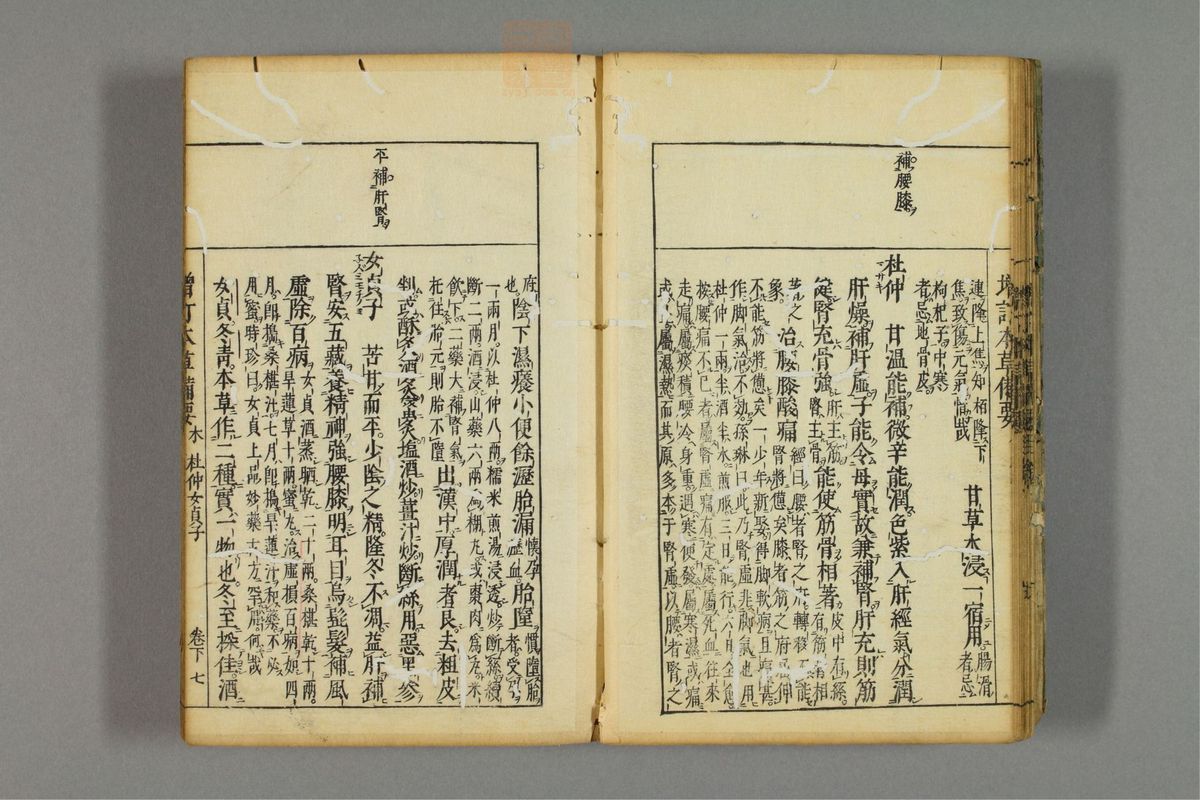 補腰膝
増訂本草備要
連降上焦知柏降下
焦致傷元氣惜哉
甘草水浸一宿用
腸滑
者忌
枸杞子中寒
者忌地骨皮
杜仲 甘温能補微辛能潤色紫入肝經氣分潤
肝燥補肝虛子能令母實故兼補腎肝充則筋
健腎充骨強
肝主筋
腎主骨
能使筋骨相著
皮中有絲
有筋骨相
著之
象
治腰膝酸痛
經曰腰者腎之府轉移不能
腎將憊矣膝者筋之府屈伸
不能筋將憊矣一少年新娶得脚軟病且疼甚
作脚氣治不効孫琳曰此乃腎虛非脚氣也用
杜仲一兩半酒半水煎服三日能行六日全愈
按腰痛不已者屬腎虛痛有定處屬死血往來
走痛屬痰積腰冷身重遇寒便發屬寒濕或痛
或止屬濕熱而其原多本于腎虛以腰者腎之
平補肝腎
府
也
陰下濕癢小便餘瀝胎漏
懷孕
瀝血
胎墮
慣墮胎
者受孕
一兩月以杜仲八兩糯米煎湯浸透炒斷絲續
斷二兩酒浸山藥六兩為糊丸或棗肉為丸米
飲下二藥大補腎氣
托住胎元則胎不墮
出漢中厚潤者良去粗皮
剉或酥炙酒炙蜜炙塩酒炒薑汁炒斷絲用惡黑參
女貞子 苦甘而平少陰之精隆冬不凋益肝補
腎安五藏養精神強腰膝明耳目烏髭髮補風
虛除百病
女貞酒蒸晒乾二十兩桑椹乾十兩
旱蓮草十兩蜜丸治虛損百病如四
月即搗桑椹汁七月即搗旱蓮汁和藥不必
用蜜時珍曰女貞上品妙藥古方罕用何哉
女貞冬青本草作二種實一物也冬至採佳酒
増訂本草備要 木 杜仲女貞子 卷下 七